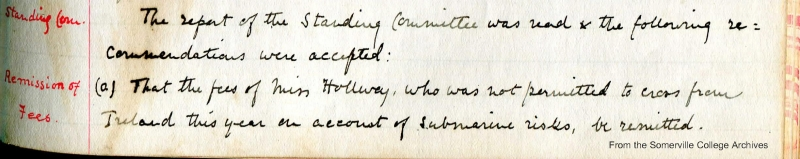 Standing Com.
The report of the Standing Committee was read & the following re=
commendations were accepted:
Remission of
Fees.
(a) That the fees of Miss Hollway, who was not permitted to cross from
Ireland this year on account of submarine risks, be remitted.
From the Somerville College Archives